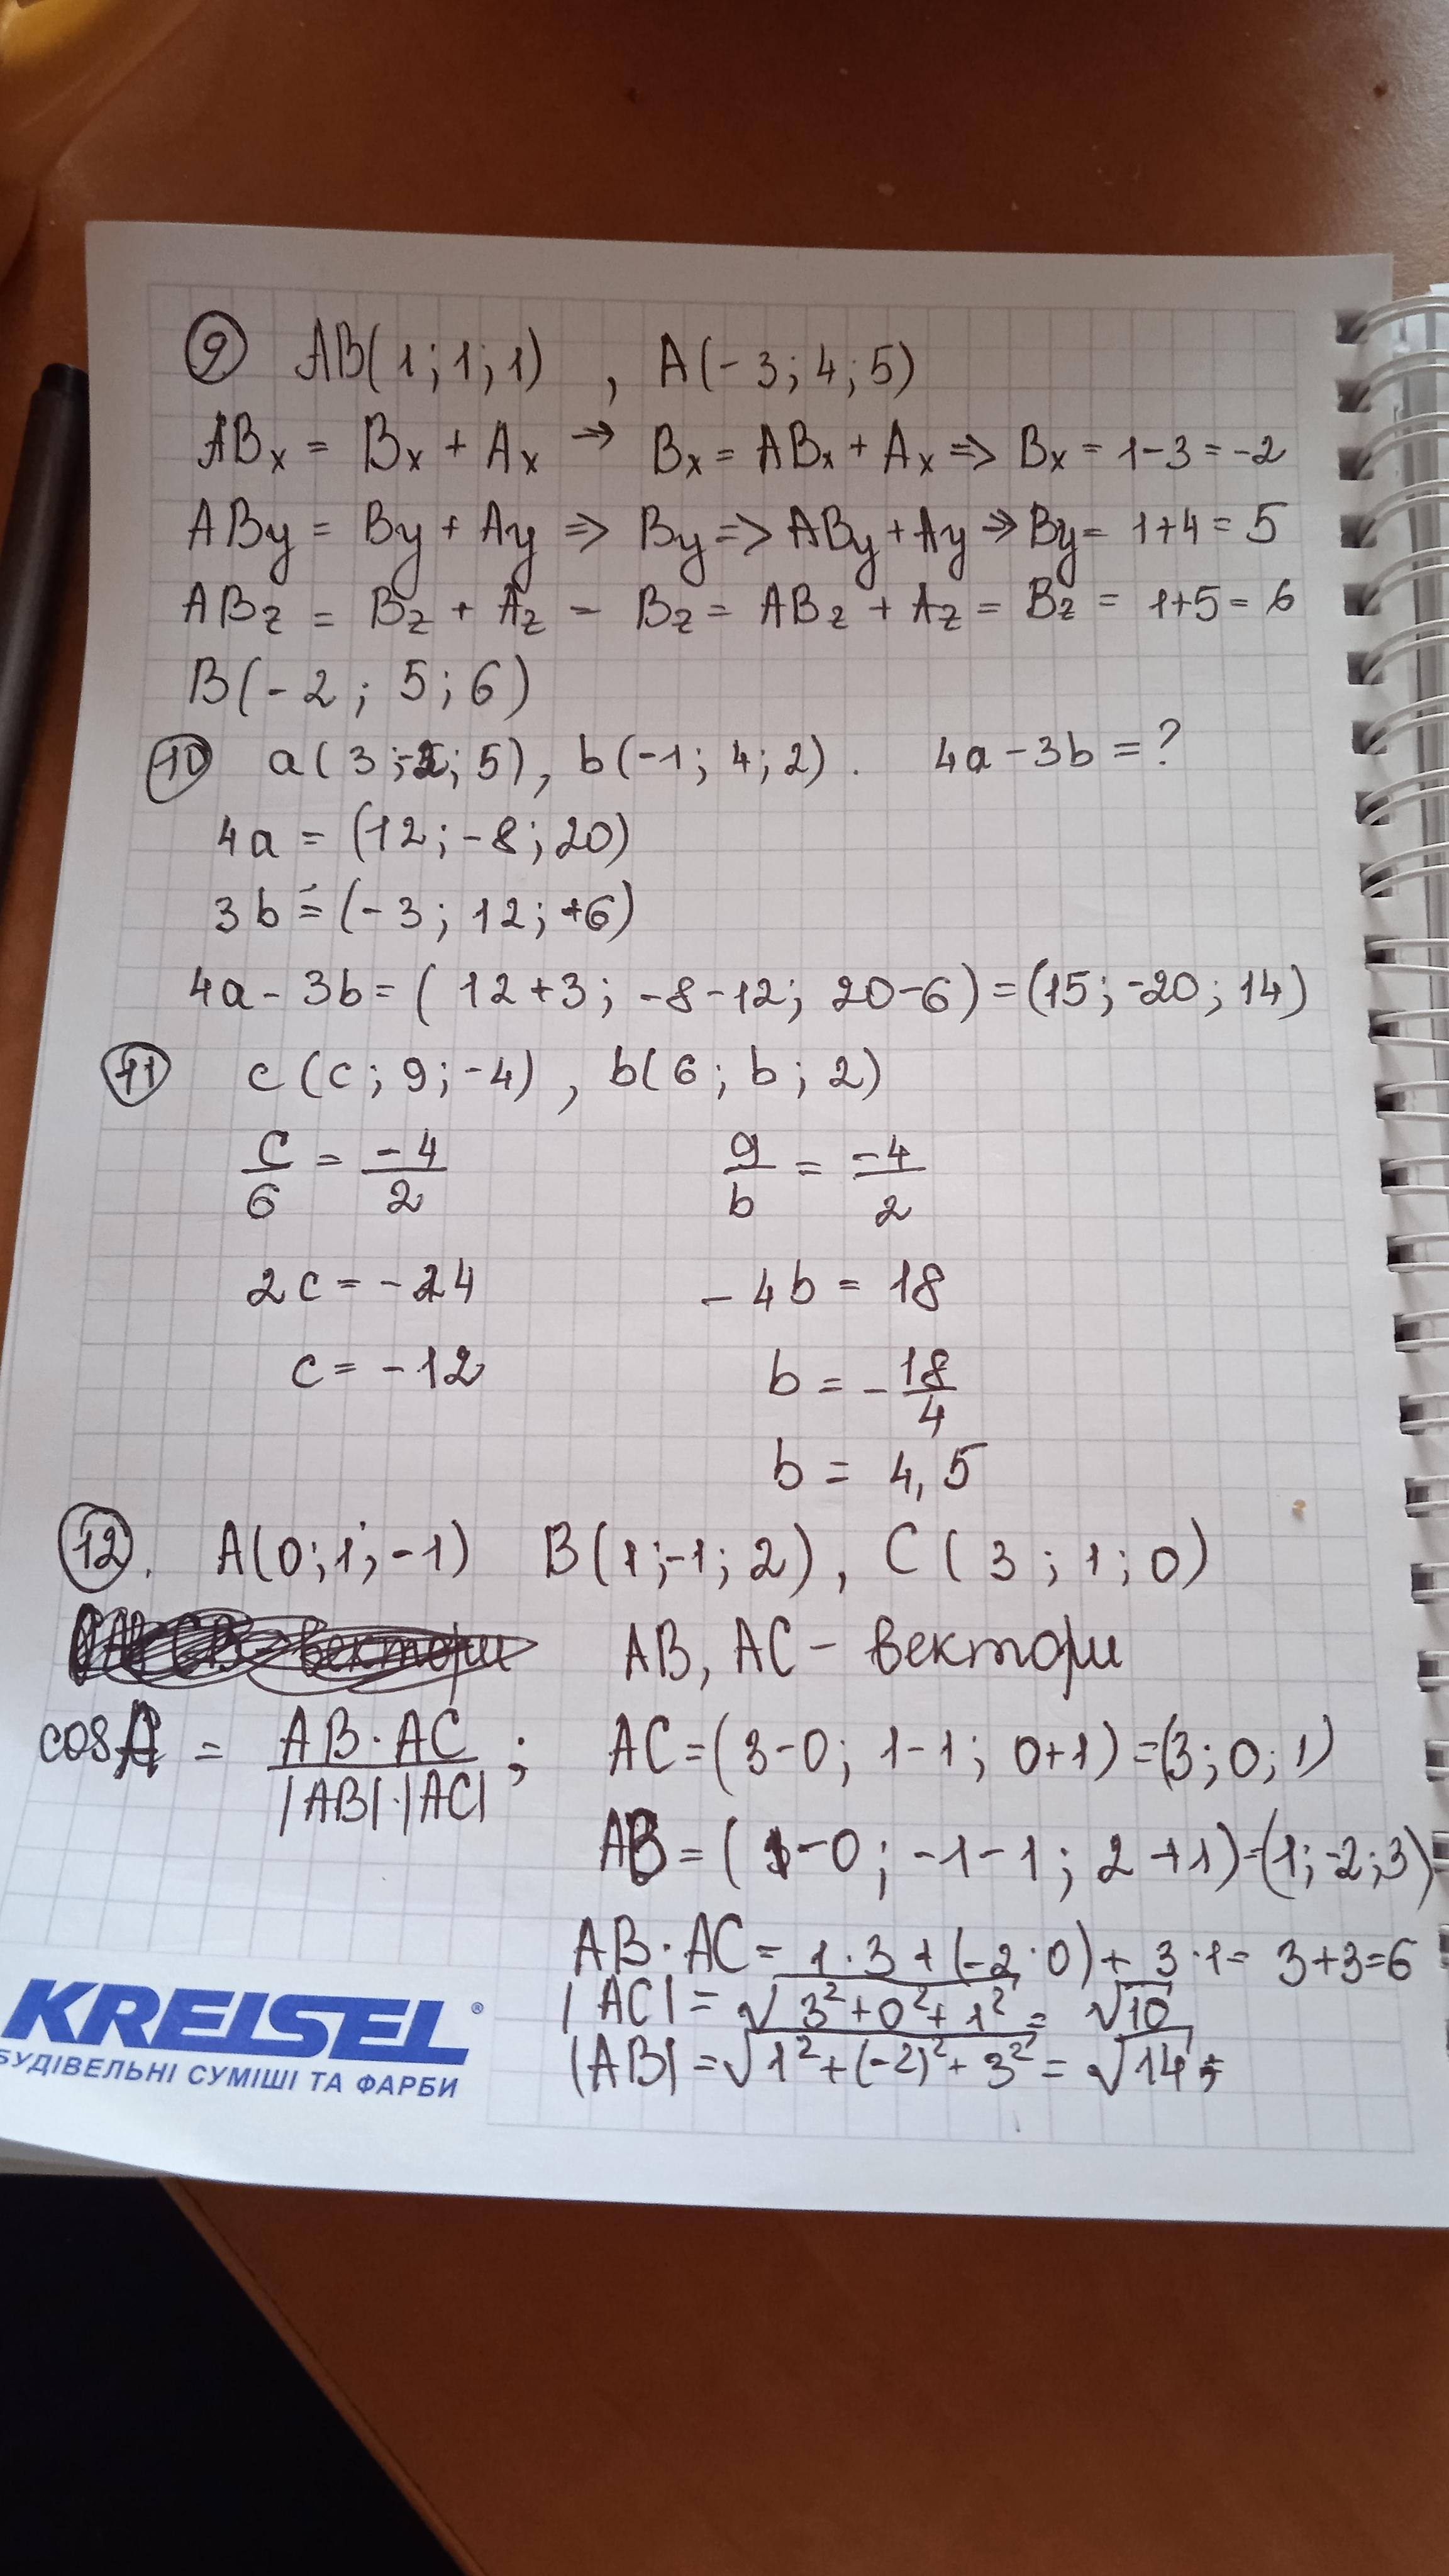 9 AB(1;1;1) , A(-3;4;5)
ABx = Bx + Ax → Bx = ABx + Ax => Bx = 1-3 = -2
ABy = By + Ay => By => ABy + Ay => By = 1+4 = 5
ABz = Bz + Az - Bz = ABz + Az = Bz = 1+5 = 6
B(-2; 5; 6)
10 a(3;-2;5), b(-1; 4; 2). 4a-3b=?
4a = (12;-8;20)
3b = (-3; 12; +6)
4a - 3b = ( 12+3; -8-12; 20-6) = (15; -20; 14)
11 c (c; 9; -4) , b(6; b; 2)
c/6 = -4/2 9/b = -4/2
2c = -24 -4b = 18
c = -12 b = -18/4
b = 4,5
12. A(0;1;-1) B(1;-1;2), C(3;1;0)
AB, AC - вектори
cosA = AB·AC/|AB|·|AC| ; AC = (3-0; 1-1; 0+1) = (3; 0; 1)
AB = (1-0; -1-1; 2+1) = (1; -2; 3)
AB·AC = 1·3 + (-2·0) + 3·1 = 3+3=6
|AC| = √3²+0²+1² = √10
|AB| = √1²+(-2)²+3² = √14;
KREISEL®
БУДІВЕЛЬНІ СУМІШІ ТА ФАРБИ